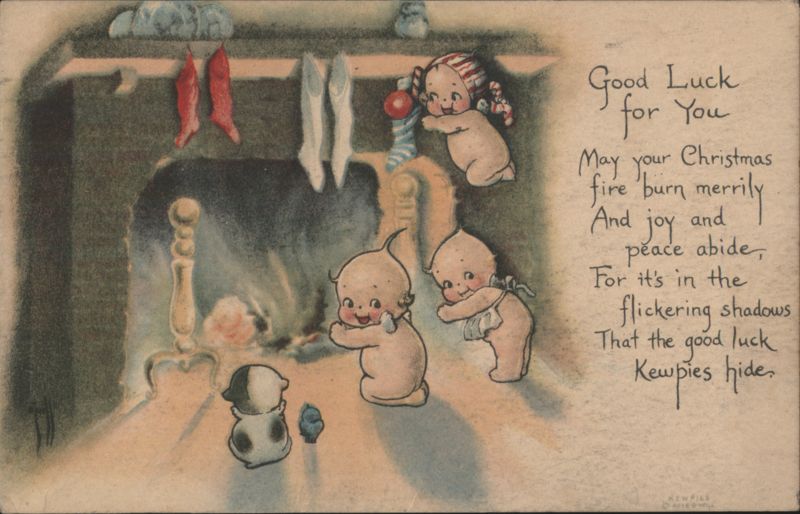 Good Luck
for You
May your Christmas
fire burn merrily
And joy and
peace abide,
For it's in the
flickering shadows
That the good luck
Kewpies hide.
KEWPIES